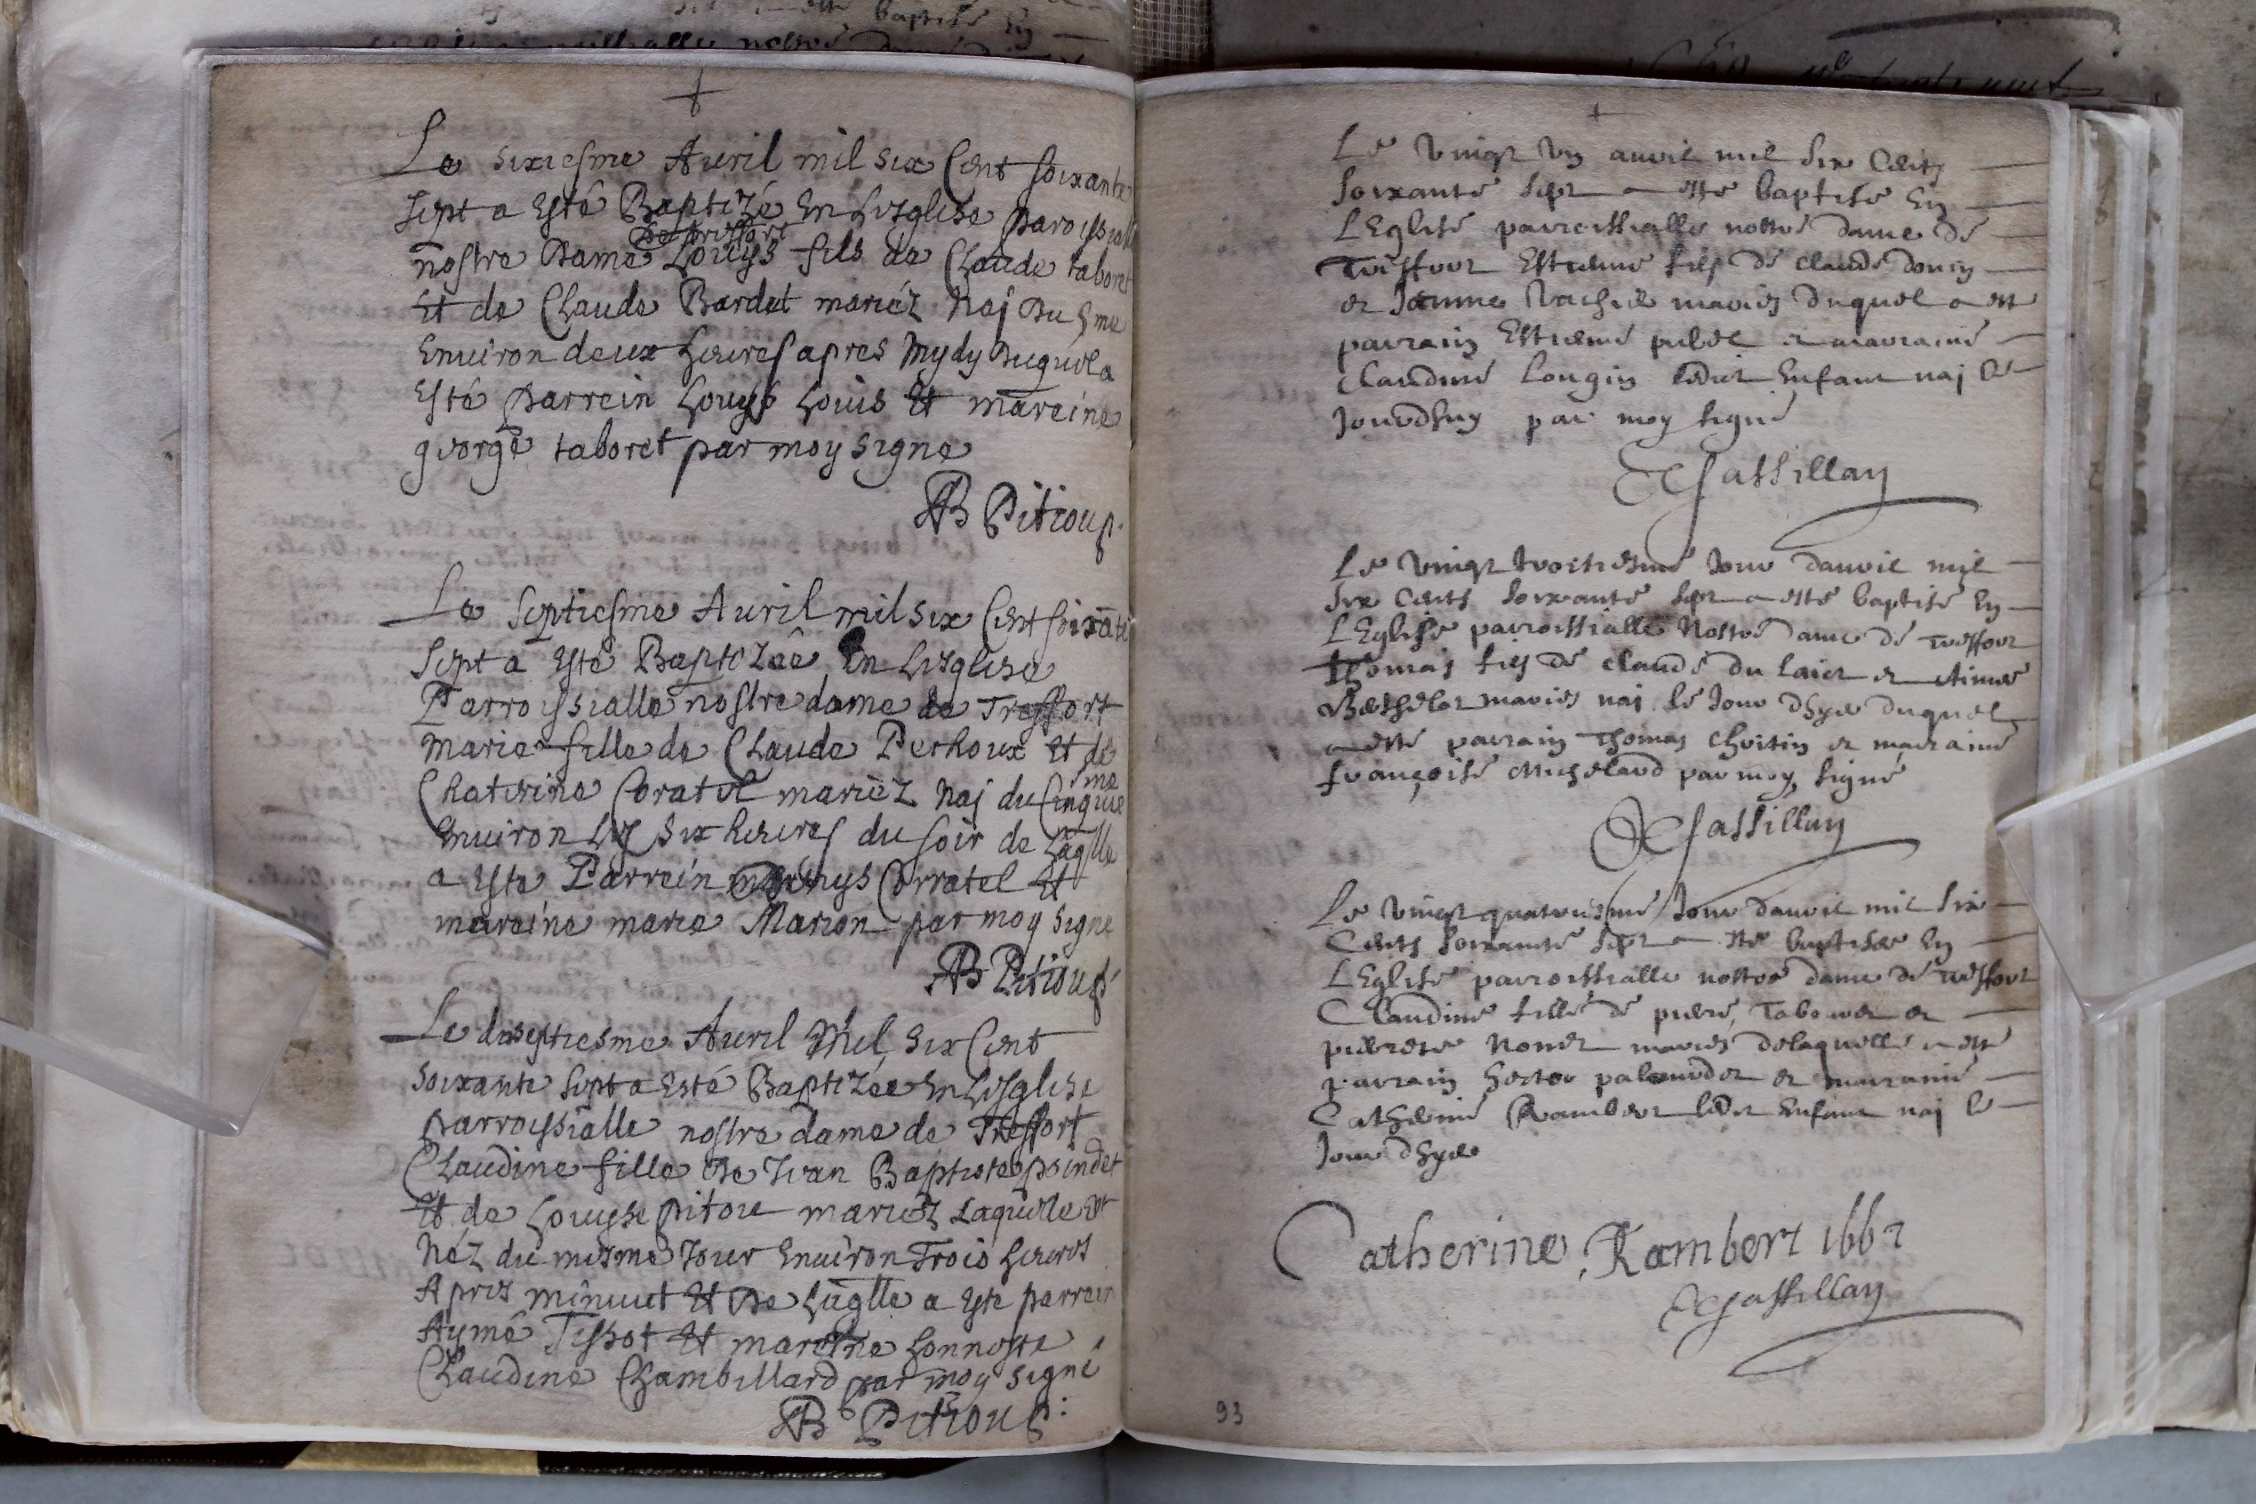 Le sixiesme Auril mil six Cent soixante
sept a esté Baptizé En Lesglise paroyssialle
de treffort
nostre Dame Louys fils de Claude taboret
Et de Claude Bardet mariéz Naj du 5me
Enuiron deux heures apres mydy Duquel a
esté parrein Louys Louis Et mareine
george taboret par moy signe
Pitiou p.
Le septiesme Auril mil six Cent soixāte
sept a esté Baptizée En Lesglise
Parroissialle nostre dame de Treffort
marie fille de Claude Perhoux Et de
Chaterine Coratel mariéz Naj du Cinquiesme
Enuiron les six heures du soir de Laqlle
a este Parrein Corratel Et
mareine marie Marion par moy signe
Pitiou p
Le dixseptiesme Auril Mil six Cent
soixante sept a esté Baptizée En Lesglise
parroissialle nostre dame de Treffort
Claudine fille de Jean Baptiste
Et de Louyse Pitou mariéz Laquelle est
Néz du mesme Jour Enuiron Trois heures
Apres minuict Et De Laqlle a este parrein
Aymé Tissot Et mareine honneste
Claudine Chambillard par moy signé
Pitiou p:
Le vingt un auril mil six Cents
soixante sept a esté baptisé En
LEglise parroissialle nostre dame de
Treffort Estienne fils de claude
et Jeanne Vachie mariés duquel a esté
parrain Estienne et marraine
Claudine Longin ledict Enfant naj Ce
Jourdhuy par moy signé
Le vingt troisiesme Jour dauril mil
six Cents soixante sept a esté baptisé En
LEglise parroissialle Nostre dame de Treffort
Thomas fils de claude du laict et Aimee
Berthelot mariés naj le Jour dhyer duquel
a esté parrain Thomas et marraine
françoise Michelard par moy signé
Le vingt quatriesme Jour dauril mil six
Cents soixante sept a esté baptisée En
LEglise parroissialle nostre dame de Treffort
Claudine fille de piere Taboret et
pierete Nonet mariés delaquelle a esté
parrain hector palourdet et marraine
Catherine Rambert ledict Enfant naj le
Jour dhyer
Catherine Rambert 1667
93